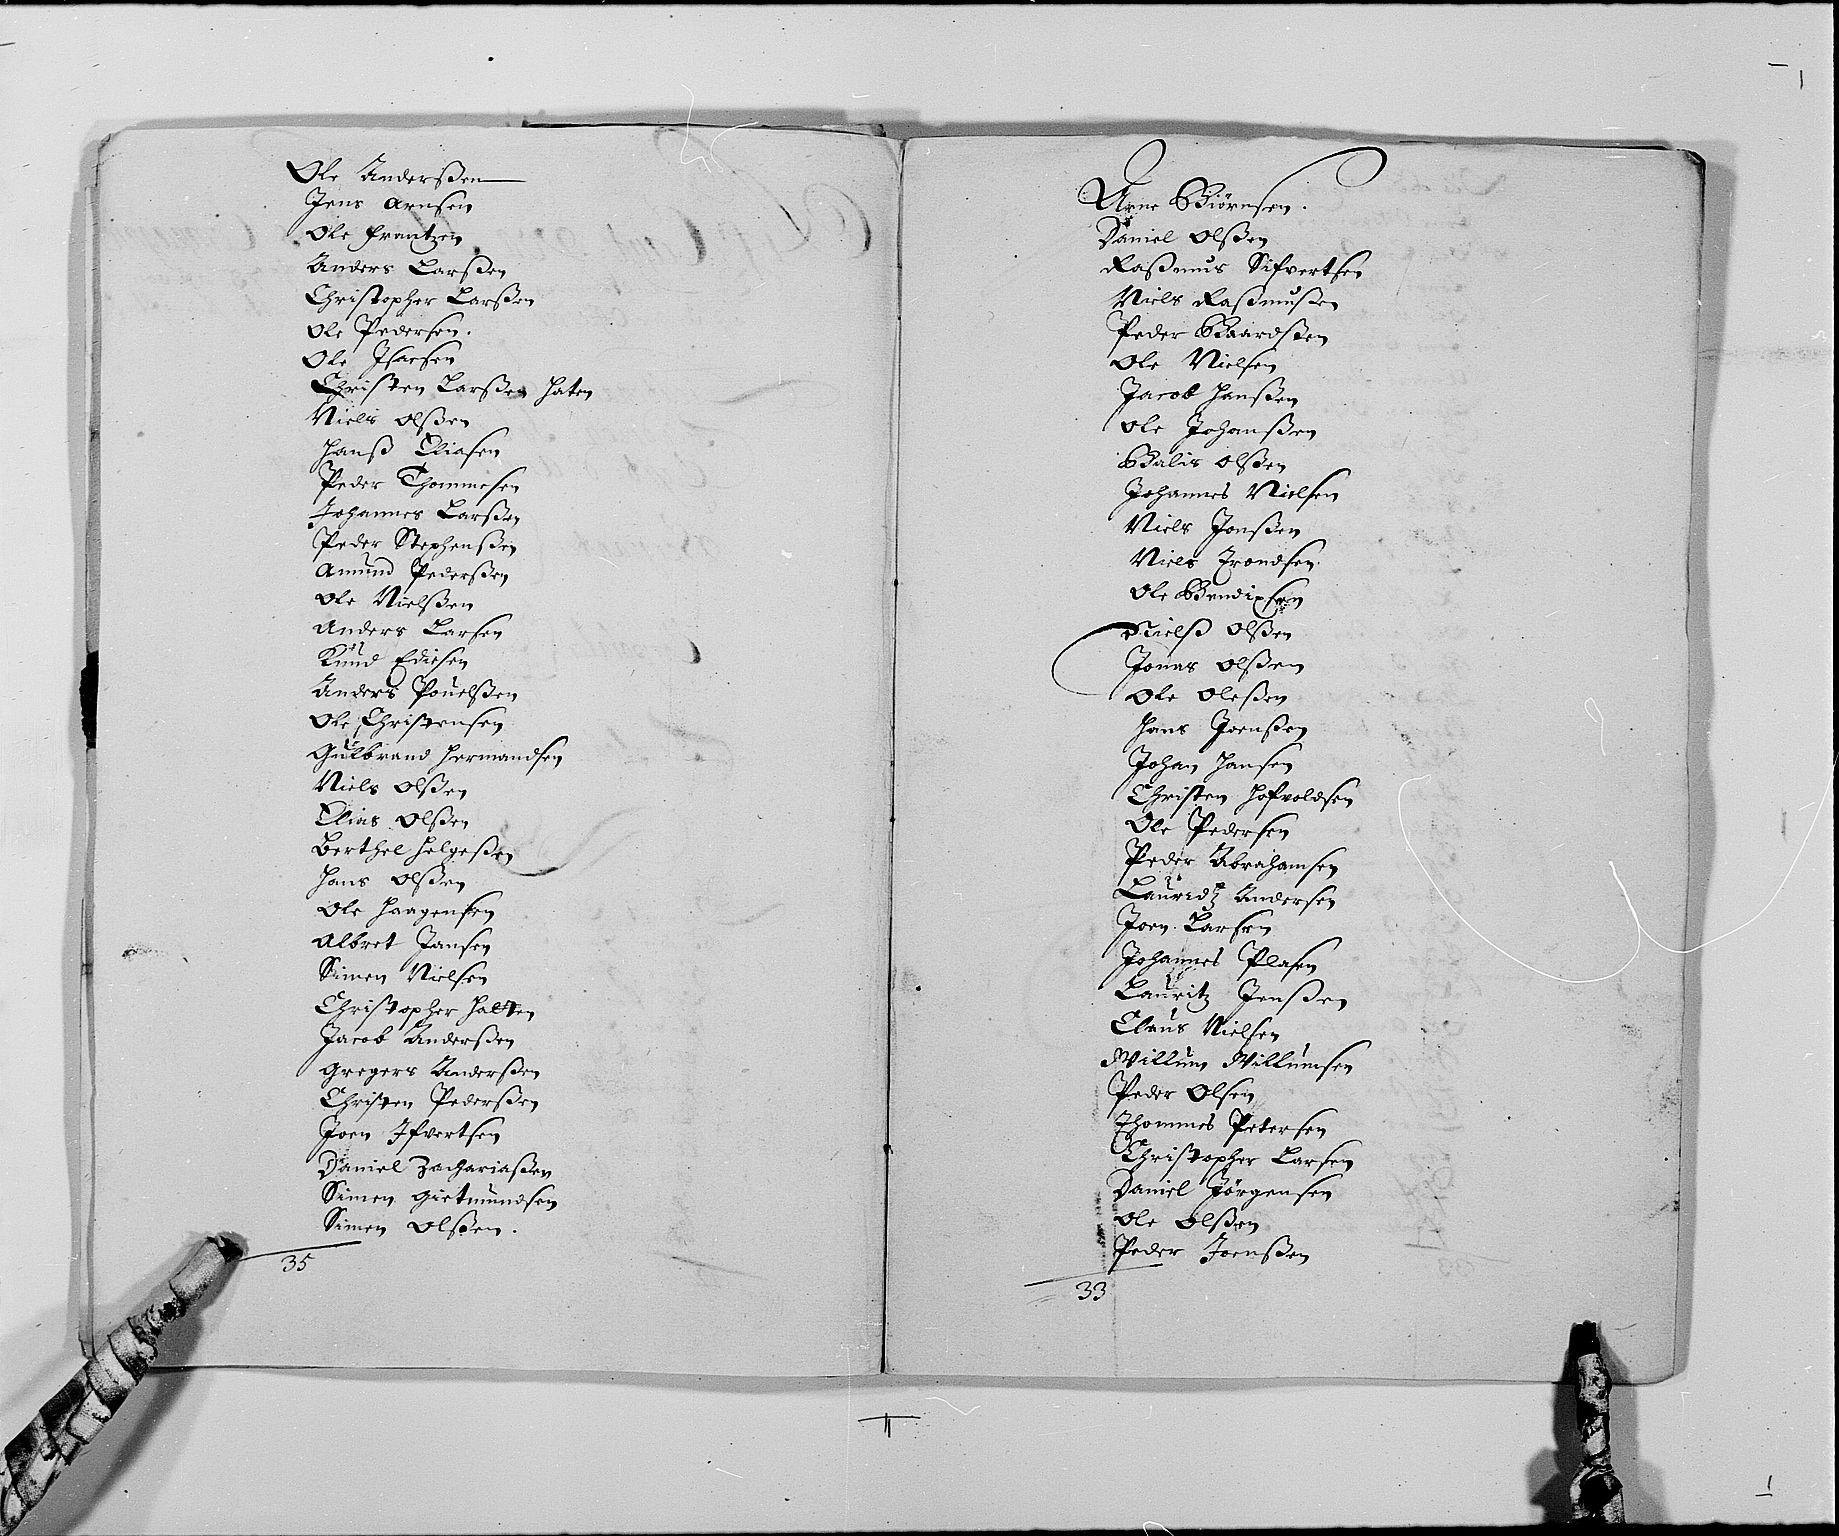 Ole Anderßen
Jens Arnsen
Ole Frantzen
Anders Larßen
Christopher Larßen
Ole Pedersen.
Ole Isacsen
Christen Larßen Haten
Niels Olßen
Hanß Eliasen
Peder Thommesen
Johannes Larßen
Peder Stephenßen
Amund Pederßen
Ole Nielßen
Anders Larsen
Knud Ediesen
Anders Pouelßen
Ole Christensen
Gulbrand Hermandsen
Niels Olßen
Elias Olßen
Berthel Helgeßen
Hans Olßen
Ole Haagensen
Albret Jansen
Simen Nielsen
Christopher Halsten
Jacob Anderßen
Gregers Anderßen
Christen Pederßen
Joen Ifvertsen
Daniel Zachariaßen
Simen Gietmundsen
Simen Olßen.
35
Arne Biörnsen.
Daniel Olßen
Raßmus Sifvertsen
Niels Raßmußen
Peder Baardsten
Ole Nielsen
Jacob Hanßen
Ole Johanßen
Balis Olßen
Johannes Nielsen
Niels Jonßen
Niels Trondsen
Ole Bendixsen
Nielß Olßen
Jonas Olßen
Ole Oleßen
Hans Joenßen
Johan Hansen
Christen Hofvoldsen
Ole Pedersen
Peder Abrahamsen
Lauridtz Andersen
Joen Larsen
Johannes Plasen
Lauritz Jenßen
Claus Nielsen
Willum Willumsen
Peder Olsen
Thommes Petersen
Christopher Larsen
Daniel Jörgensen
Ole Olßen
Peder Joenßen
33